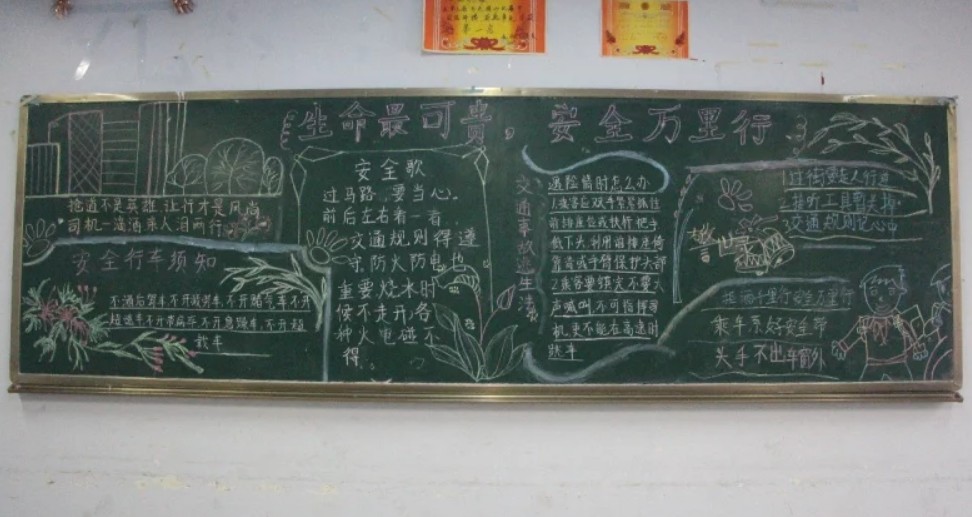 第一名
生命最可贵，安全万里行
抢道不是英雄 让行才是风尚
司机一滴酒 亲人泪两行
安全行车须知
不酒后驾车不开疲劳车,不开赌气车不开
超速车不开带病车,不开急躁车,不开超
载车
安全歌
过马路,要当心.
前后左右看一看,
交通规则得遵
守,防火防电也
重要.烧水时
候不走开,各
种火电碰不
得.
交通事故逃生法
遇险情时怎么办
1.乘客应双手紧紧抓住
前排座位或扶杆把手
低下头,利用前排座椅
靠背或手臂保护头部
2.乘客要镇定不要大
声喊叫不可指挥司
机更不能在高速时
跳车
警
言
1.过街要走人行道
2.接听工具要关掉.
交通规则记心中
千里行安全万里行
乘车系好安全带
头手不出车窗外